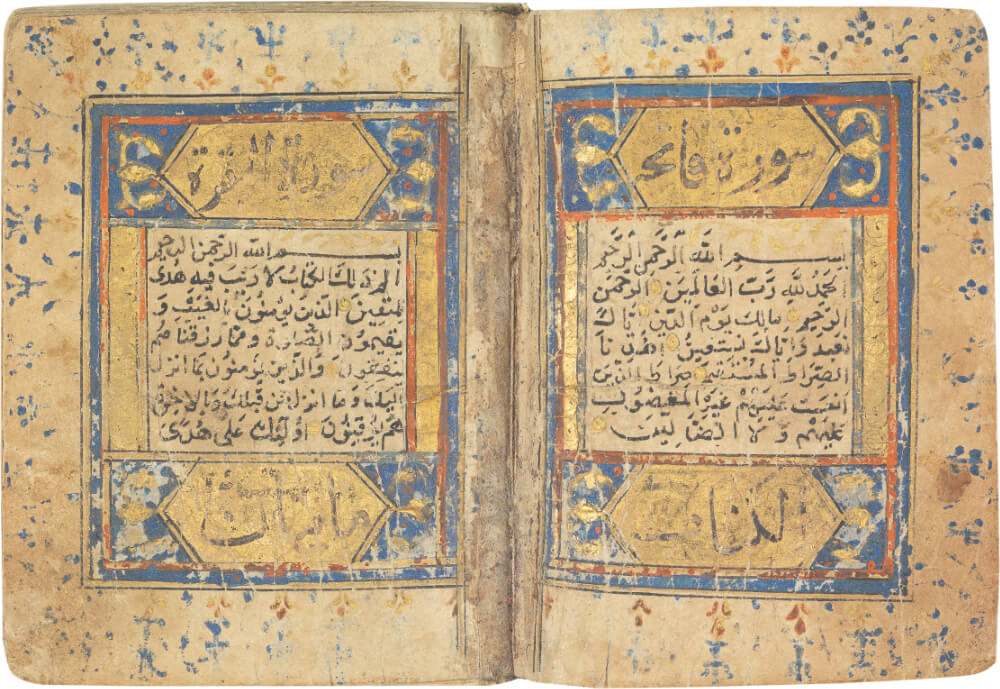 سورة فاتحة
بِسْمِ اللَّهِ الرَّحْمَنِ الرَّحِيمِ
الحَمْدُ لِلَّهِ رَبِّ العَالَمِينَ الرَّحْمَنِ
الرَّحِيمِ مَالِكِ يَوْمِ الدِّينِ اِيَّاكَ
نَعبُدُ وَاِيَّاكَ نَسْتَعِينُ اِهْدِنَا
الصِّرَاطَ المُسْتَقِيمَ صِرَاطَ الَّذِينَ
انعَمتَ عَلَيْهِمْ غَيْرِ المَغْضُوبِ
عَلَيْهِمْ وَلَا الضَّالِّينَ
الكتاب
سورة البقرة
بسم الله الرحمن الرحيم
الم ذلك الكتاب لا ريب فيه هدى
للمتقين الذين يؤمنون بالغيب و
يقيمون الصلوة ومما رزقناهم
ينفقون والذين يؤمنون بما انزل
اليك وما انزل من قبلك وبالاخرة
هم يوقنون اولئك على هدى
مايتان